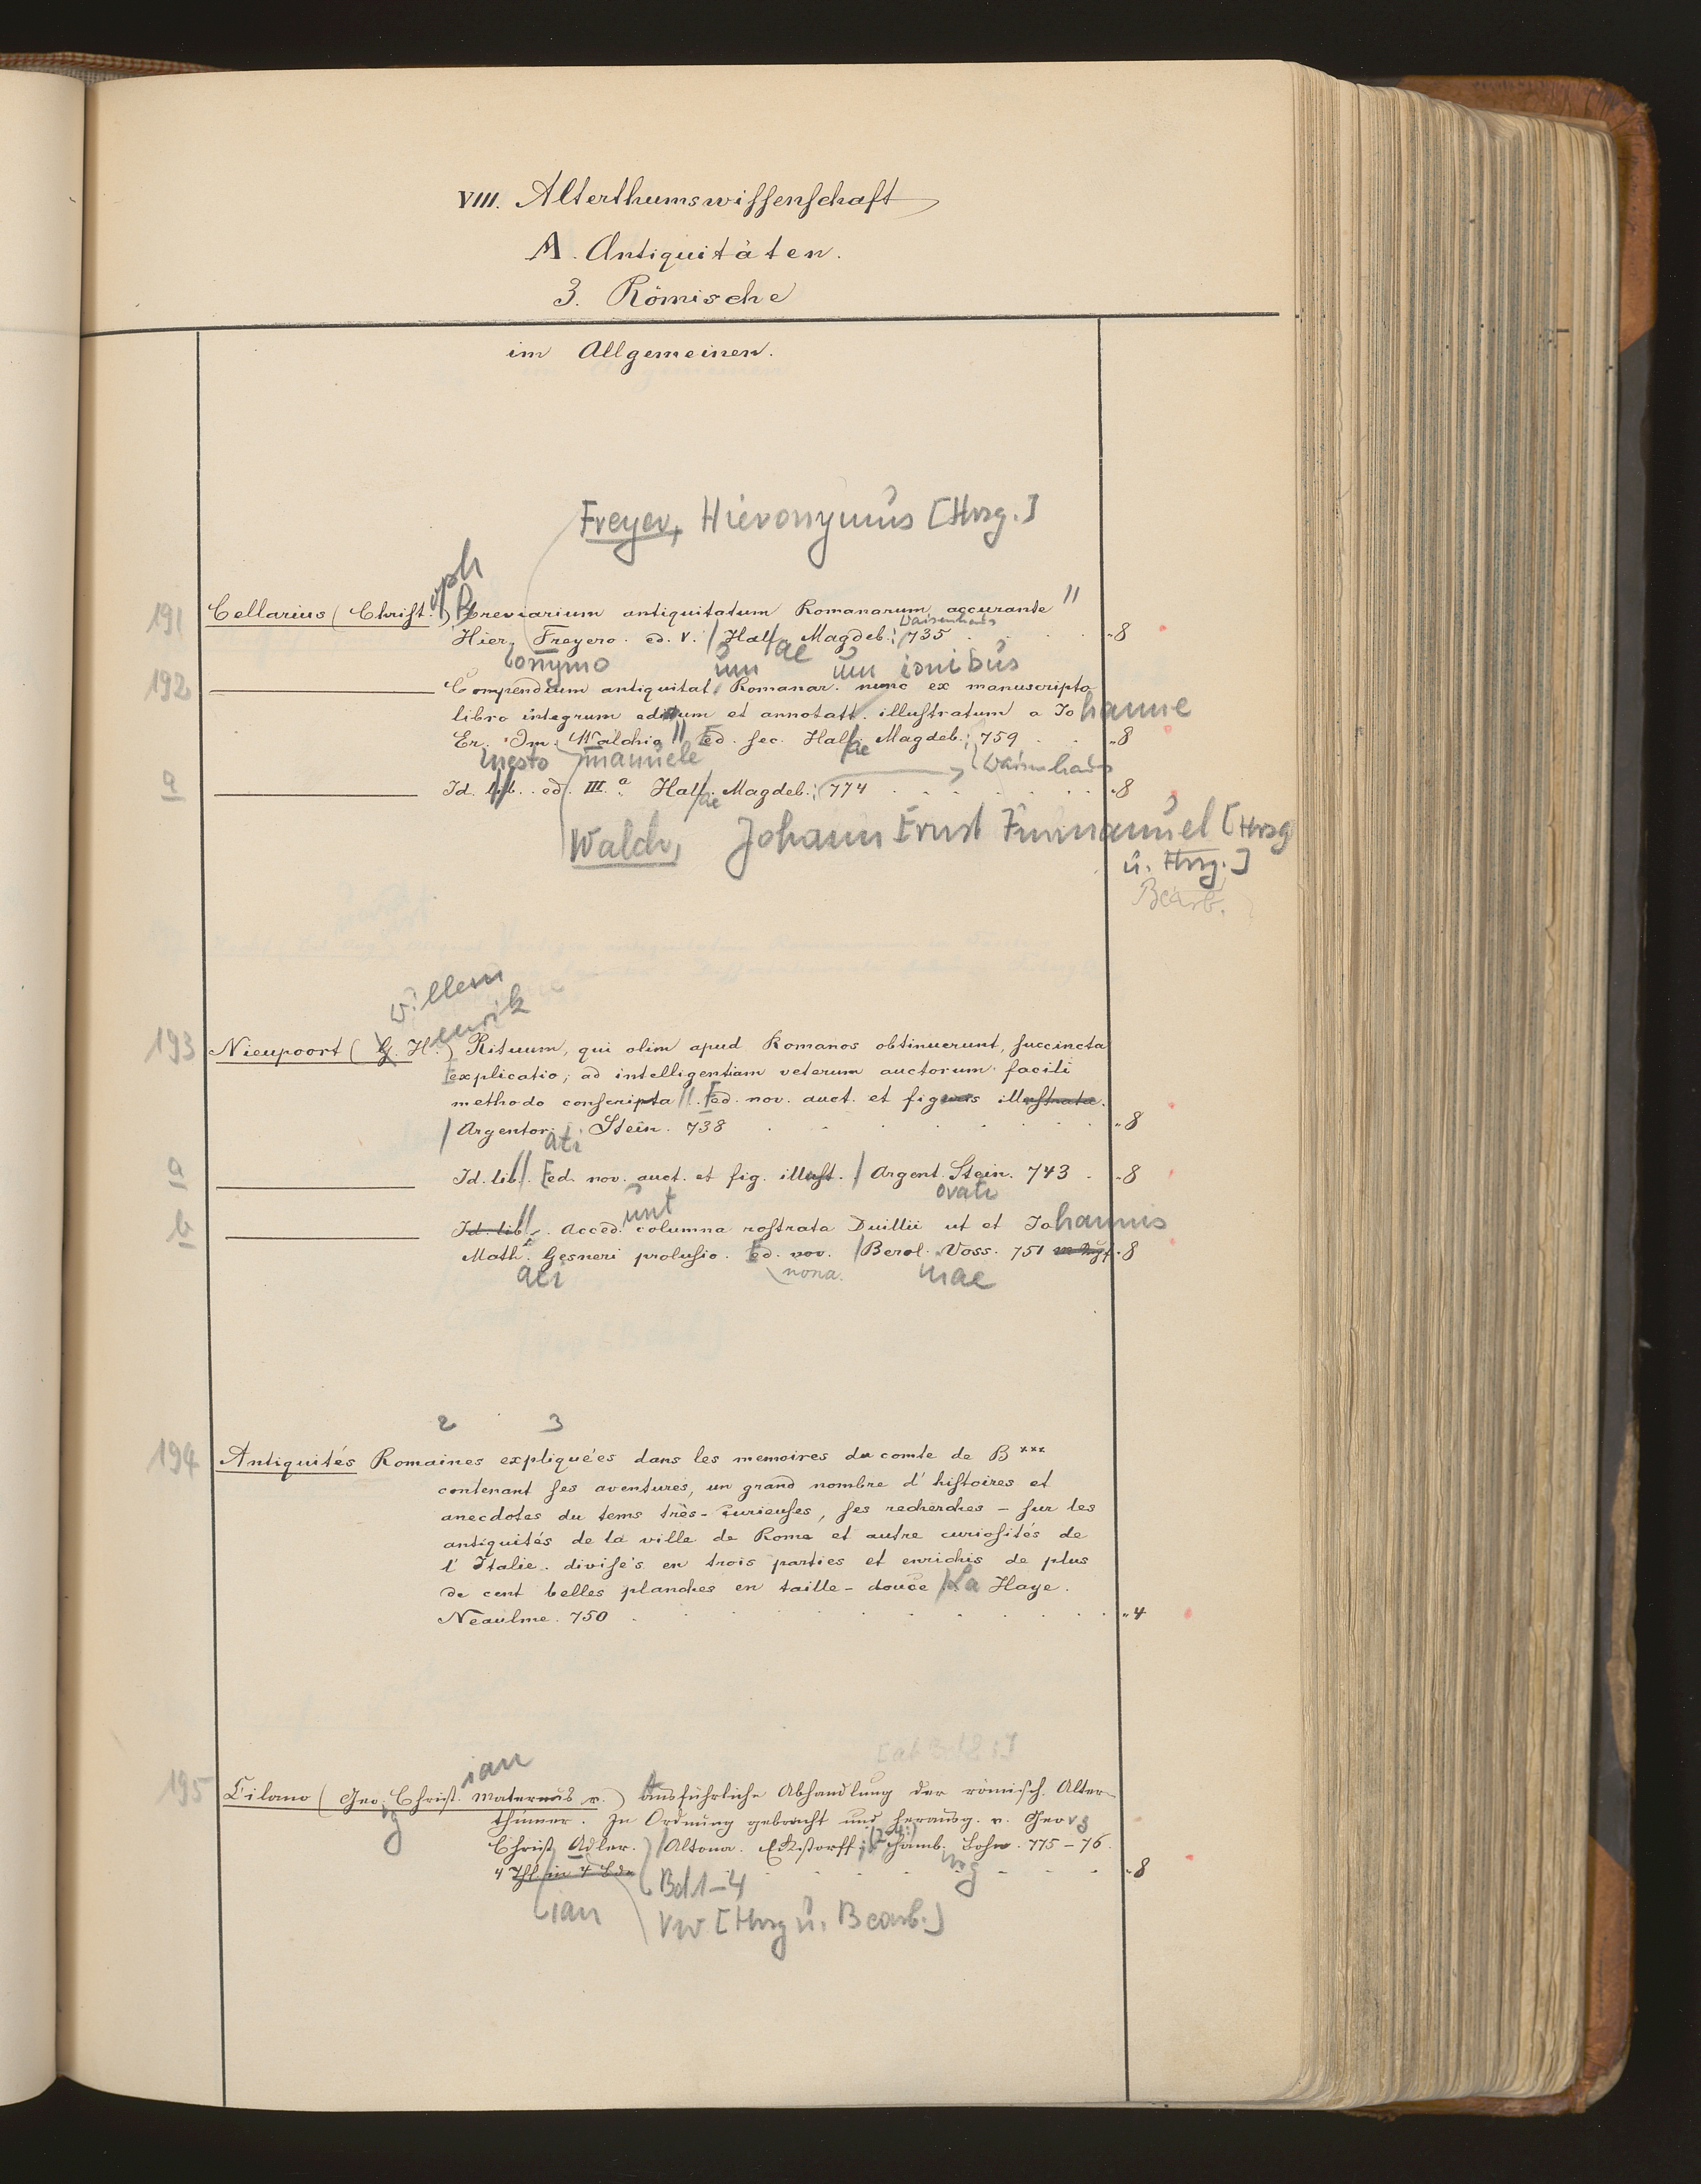 VIII. Alterthumswissenschaft
A. Antiquitäten.
3. Römische
im Allgemeinen.
Freyer, Hieronymus [Hrsg.]
oph
191 Cellarius (Christ.) Breviarium antiquitatum Romanarum accurante //
Waisenhaus
Hier. Freyero. ed. V. / Hal/ae Magdeb.: 735 . . . . 8
onymo um um ionibus
192 Compendium antiquitat. Romanar. nunc ex manuscripto
libro integrum editum et annotatt. illustratum a Johanne
Er. Im. Walchio // Ed. sec. Hal/ae Magdeb.: 759 . . 8
nesto manuele Waisenhaus
a Id. lib. ed. III.a Hal/ae Magdeb.: 774 . . . . . 8
Walch, Johann Ernst Immanuel [Hrsg
u. Hrsg.]
Bearb.
willem
enrik
193 Nieupoort (G. H.) Rituum, qui olim apud Romanos obtinuerunt, succincta
explicatio; ad intelligentiam veterum auctorum facili
methodo conscripta //. Ed. nov. auct. et figuris illustrata.
/ Argentor. Stein. 738 . . . . . . . 8
ati
a Id. lib//. Ed. nov. auct. et fig. illust. / Argent. Stein. 743 . 8
unt orati
b Id. lib//. Acced. columna rostrata Duillii ut et Johannis
Math. Gesneri prolusio. Ed. nov. / Berol. Voss. 751 8
nona.
2 3
194 Antiquités Romaines expliquées dans les memoires du comte de B***
contenant ses aventures, un grand nombre d'histoires et
anecdotes du tems très-curieuses, ses recherches – sur les
antiquités de la ville de Rome et autre curiosités de
l'Italie. divisés en trois parties et enrichis de plus
de cent belles planches en taille-douce / La Haye.
Neaulme. 750 . . . . . . . . . . 4
ian
195 Cilano (Geo. Christ. Maternus v.) Ausführliche Abhandlung der römisch. Alter-
rg
thümer. In Ordnung gebracht und herausg. v. Georg
Christ. Adler. / Altona. Eckstorff; (2-4:) Hamb. Bohn. 775–76.
4 Thl in 4 Bde . . . . 8
Bd 1–4
ian VW [Hrsg u. Bearb.]